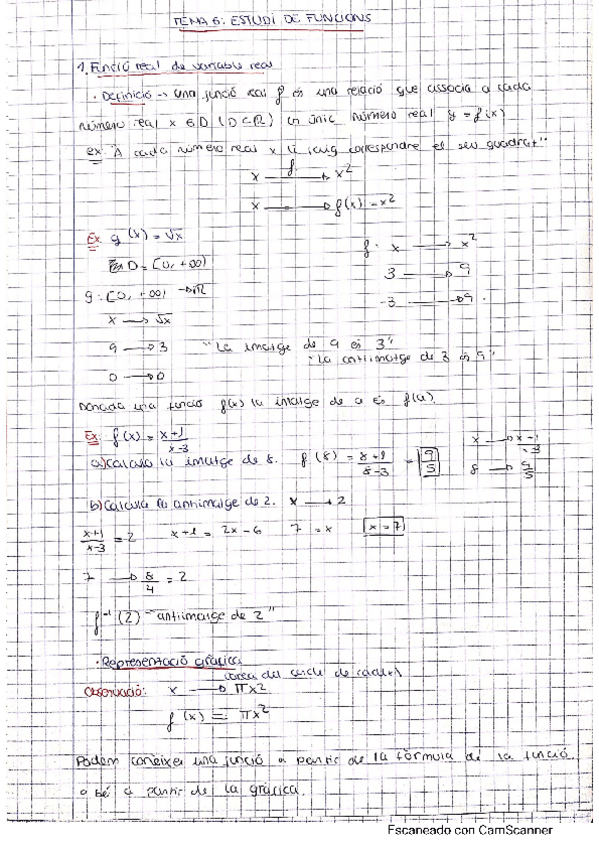 TEMA 6: ESTUDI DE FUNCIONS
1. Funció real de variable real
· Definició → una funció real f és una relació que associa a cada
número real x ∈ D (D ⊂ R) un únic número real y = f(x)
ex: "A cada número real x li faig correspondre el seu quadrat"
f
x ⟶ x²
x ⟶ f(x) = x²
Ex: g(x) = √x
D = [0, +∞)
g: [0, +∞) → R
x → √x
9 → 3
0 → 0
f: x ⟶ x²
3 ⟶ 9
-3 ⟶ 9
"La imatge de 9 és 3"
"La antiimatge de 3 és 9"
Donada una funció f(x) la imatge de a és f(a).
Ex: f(x) = x+1/x-3
a) Calcula la imatge de 8. f(8) = 8+1/8-3 = 9/5
x ⟶ x+1/x-3
8 ⟶ 9/5
b) Calcula la antiimatge de 2. x ⟶ 2
x+1/x-3 = 2 x+1 = 2x-6 7 = x x = 7
7 ⟶ 8/4 = 2
f⁻¹(2) "antiimatge de 2"
· Representació gràfica
àrea del cercle de radi x
Observació: x ⟶ πx²
f(x) = πx²
Podem conèixer una funció a partir de la fórmula de la funció
o bé a partir de la gràfica.
Escaneado con CamScanner